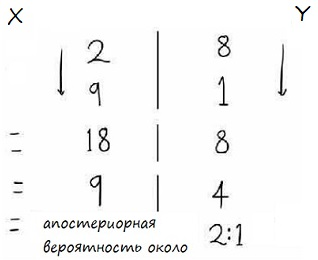 X Y
2 | 8
9 | 1
= 18 | 8
= 9 | 4
= апостериорная
вероятность около 2:1